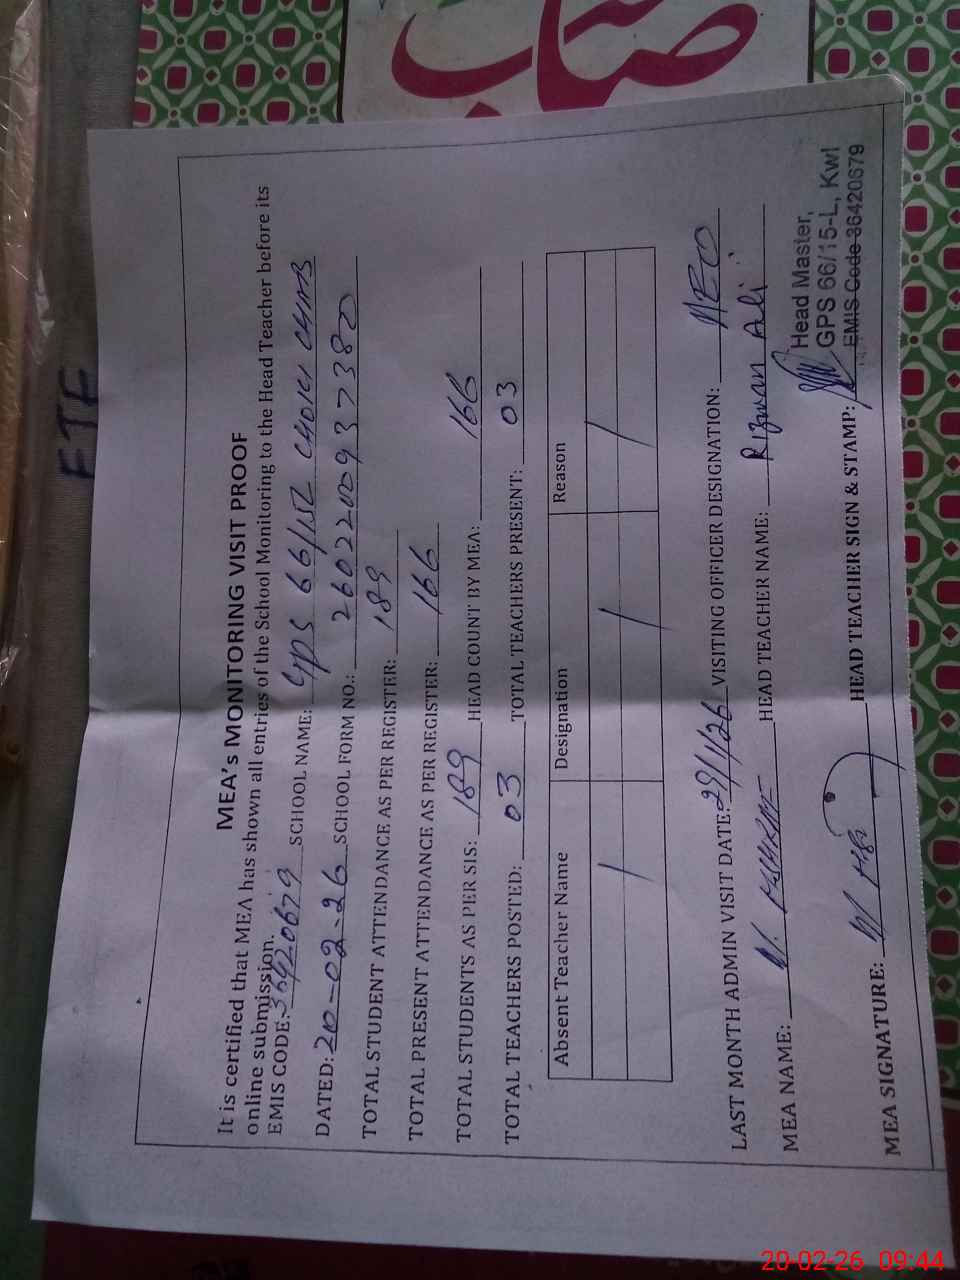 نصاب
ETF
MEA's MONITORING VISIT PROOF
It is certified that MEA has shown all entries of the School Monitoring to the Head Teacher before its
online submission.
EMIS CODE: 36420679 SCHOOL NAME: GPS 66/15L
DATED: 20-02-26 SCHOOL FORM NO.: 2602200937380
TOTAL STUDENT ATTENDANCE AS PER REGISTER: 189
TOTAL PRESENT ATTENDANCE AS PER REGISTER: 166
TOTAL STUDENTS AS PER SIS: 189 HEAD COUNT BY MEA: 166
TOTAL TEACHERS POSTED: 03 TOTAL TEACHERS PRESENT: 03
Absent Teacher Name Designation Reason
/ / /
LAST MONTH ADMIN VISIT DATE: 29/1/26 VISITING OFFICER DESIGNATION: AEO
MEA NAME: M. HEAD TEACHER NAME: Rizwan Ali
Head Master,
GPS 66/15-L, Kwl
EMIS Code 36420679
MEA SIGNATURE: HEAD TEACHER SIGN & STAMP:
20-02-26 09:44